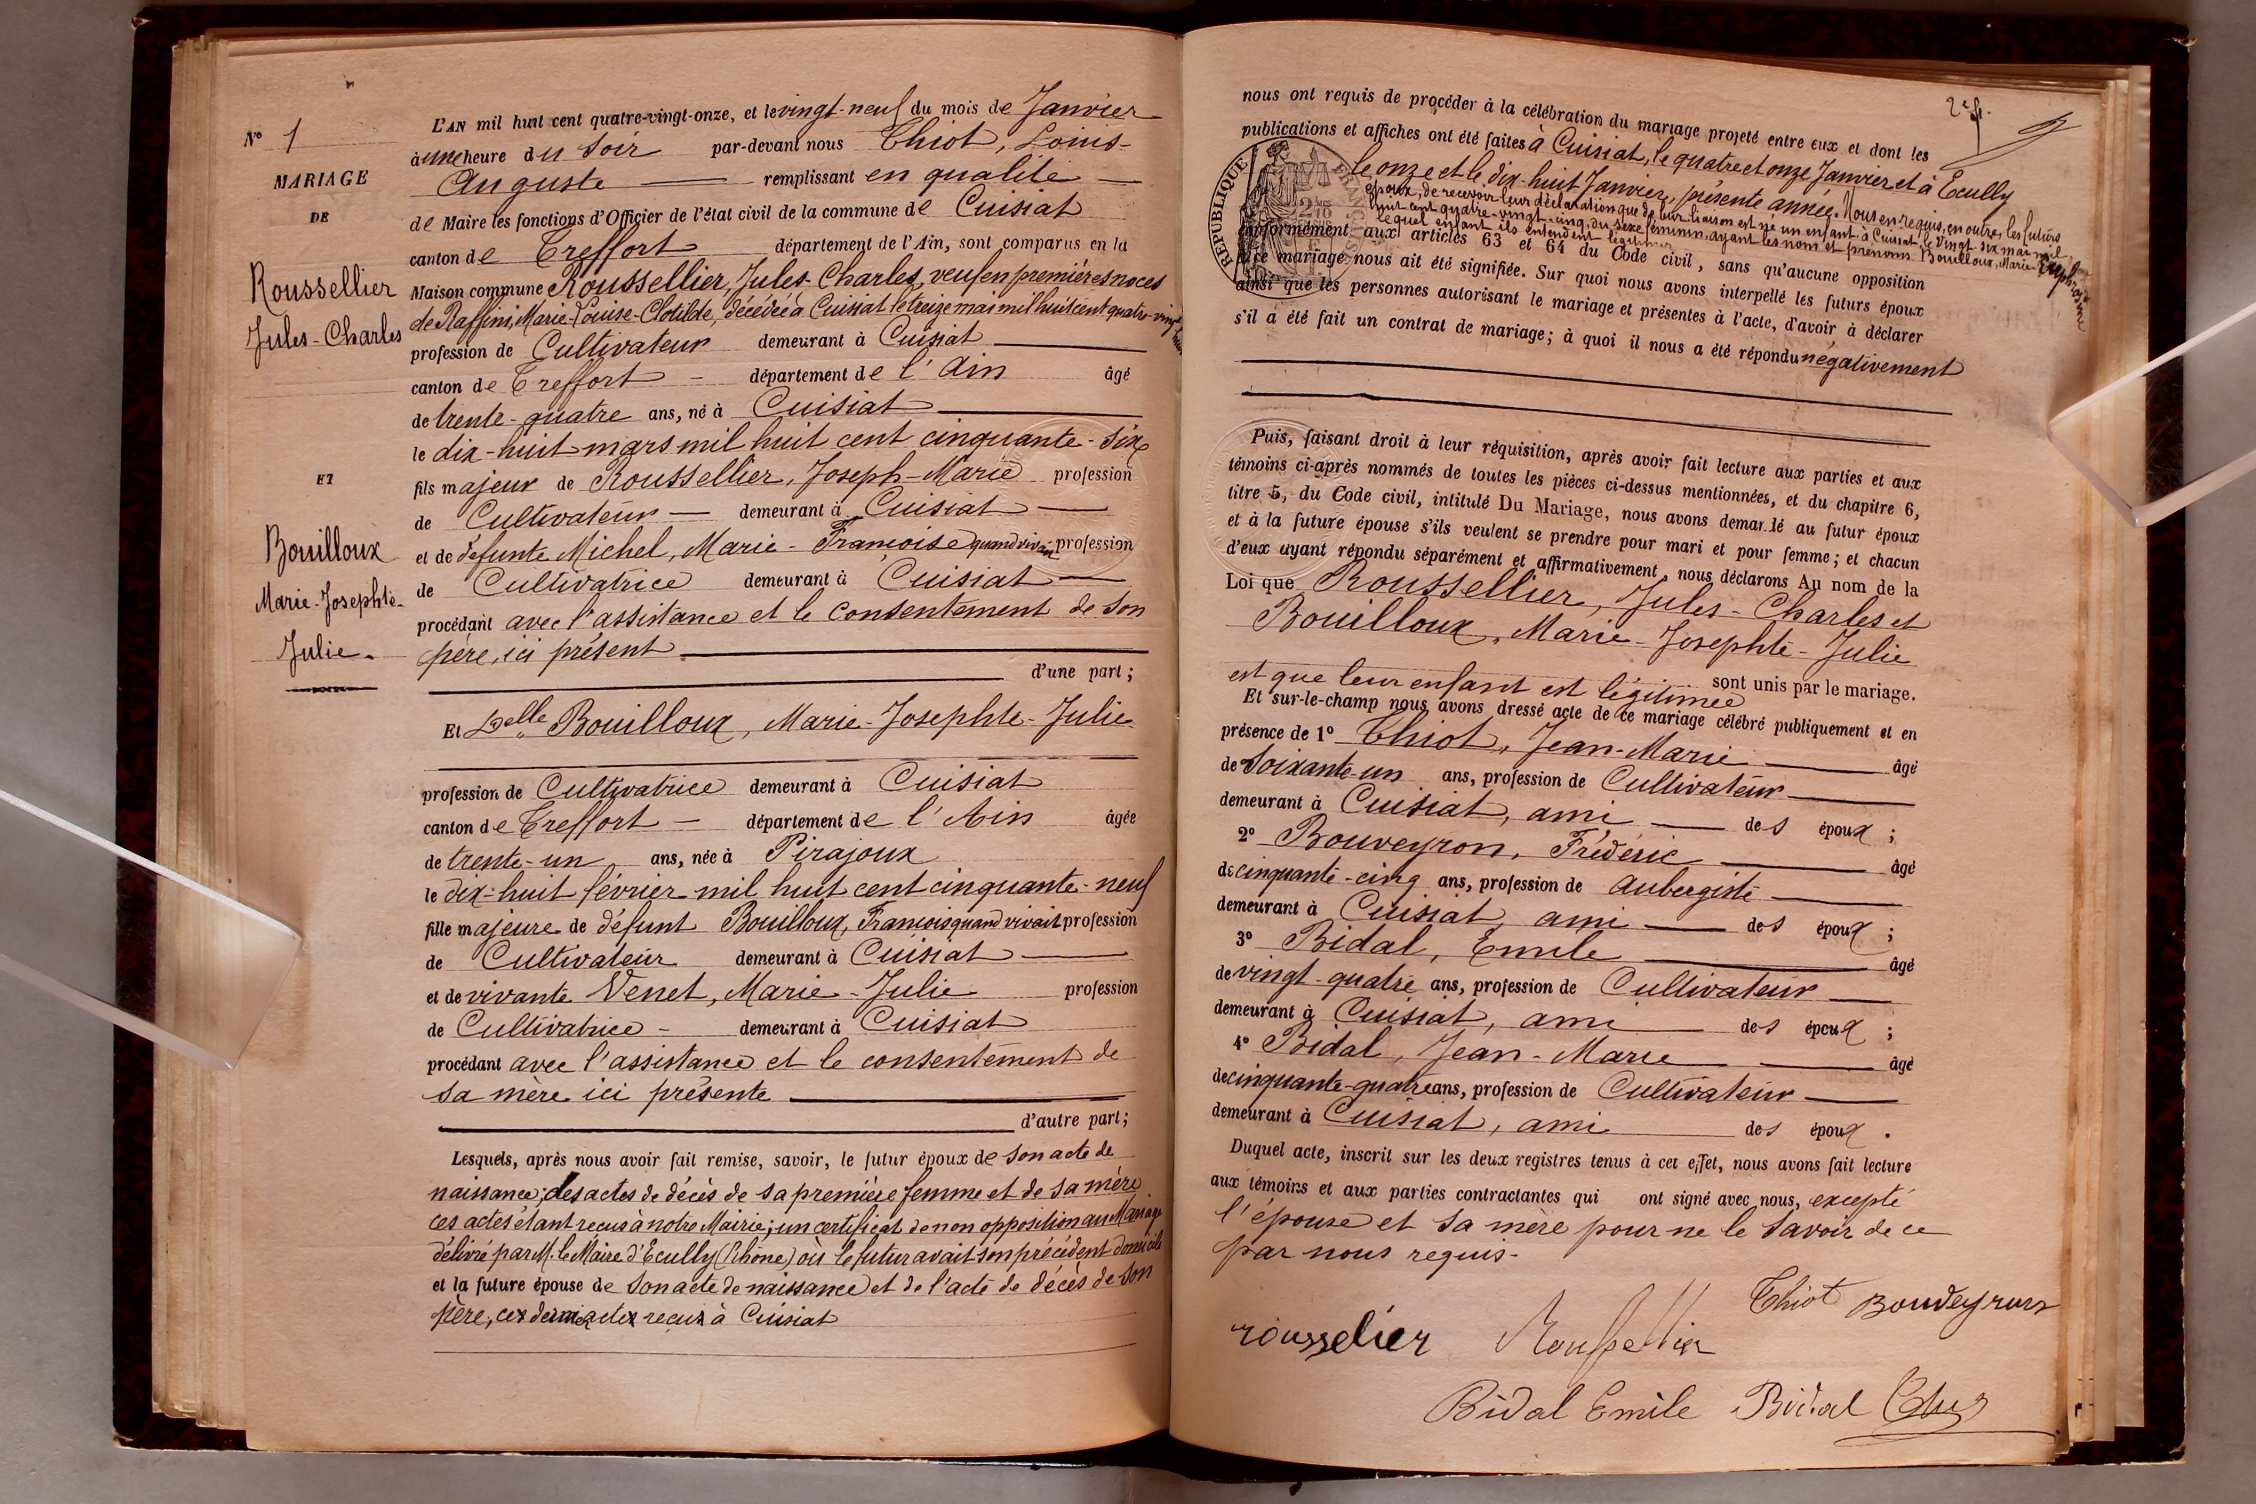 N° 1
MARIAGE
DE
Roussellier
Jules-Charles
ET
Bouilloux
Marie-Josephte-
Julie.
L'AN mil huit cent quatre-vingt-onze, et le vingt-neuf du mois de Janvier
à une heure du soir par-devant nous Thiot, Louis-
Auguste remplissant en qualité
de Maire les fonctions d'Officier de l'état civil de la commune de Cuisiat
canton de Treffort département de l'Ain, sont comparus en la
Maison commune Roussellier, Jules-Charles, veuf en premières noces
de Raffini, Marie-Louise-Clotilde, décédée à Cuisiat le treize mai mil huit cent quatre-vingt
profession de Cultivateur demeurant à Cuisiat
canton de Treffort département de l'Ain âgé
de trente-quatre ans, né à Cuisiat
le dix-huit mars mil huit cent cinquante-six
fils majeur de Roussellier, Joseph-Marie profession
de Cultivateur demeurant à Cuisiat
et de défunte Michel, Marie-Françoise quand vivait profession
de Cultivatrice demeurant à Cuisiat
procédant avec l'assistance et le consentement de son
père, ici présent
d'une part;
Et Delle Bouilloux, Marie-Josephte-Julie
profession de Cultivatrice demeurant à Cuisiat
canton de Treffort département de l'Ain âgée
de trente-un ans, née à Pirajoux
le dix-huit février mil huit cent cinquante-neuf
fille majeure de défunt Bouilloux, François quand vivait profession
de Cultivateur demeurant à Cuisiat
et de vivante Venet, Marie-Julie profession
de Cultivatrice demeurant à Cuisiat
procédant avec l'assistance et le consentement de
sa mère ici présente
d'autre part;
Lesquels, après nous avoir fait remise, savoir, le futur époux de son acte de
naissance; des actes de décès de sa première femme et de sa mère
ces actes étant reçus à notre Mairie; un certificat de non opposition au Mariage
délivré par M. le Maire d'Ecully (Rhône) où le futur avait son précédent domicile
et la future épouse de son acte de naissance et de l'acte de décès de son
père, ces actes reçus à Cuisiat
2e f.
nous ont requis de procéder à la célébration du mariage projeté entre eux et dont les
publications et affiches ont été faites à Cuisiat, le quatre et onze Janvier et à Ecully
le onze et le dix-huit Janvier, présente année. Nous en requis, en outre, les futurs
époux, de recevoir leur déclaration que de leur liaison est né un enfant à Cuisiat, le vingt-six mai mil
huit cent quatre-vingt-cinq, du sexe féminin, ayant les nom et prénoms Bouilloux, Marie-Euphrosine
lequel enfant ils entendent légitimer
conformément aux articles 63 et 64 du Code civil, sans qu'aucune opposition
à ce mariage nous ait été signifiée. Sur quoi nous avons interpellé les futurs époux
ainsi que les personnes autorisant le mariage et présentes à l'acte, d'avoir à déclarer
s'il a été fait un contrat de mariage; à quoi il nous a été répondu négativement
RÉPUBLIQUE FRANÇAISE
Puis, faisant droit à leur réquisition, après avoir fait lecture aux parties et aux
témoins ci-après nommés de toutes les pièces ci-dessus mentionnées, et du chapitre 6,
titre 5, du Code civil, intitulé Du Mariage, nous avons demandé au futur époux
et à la future épouse s'ils veulent se prendre pour mari et pour femme; et chacun
d'eux ayant répondu séparément et affirmativement, nous déclarons Au nom de la
Loi que Roussellier, Jules-Charles et
Bouilloux, Marie-Josephte-Julie
sont unis par le mariage.
est que leur enfant est légitimée
Et sur-le-champ nous avons dressé acte de ce mariage célébré publiquement et en
présence de 1° Thiot, Jean-Marie âgé
de Soixante-un ans, profession de Cultivateur
demeurant à Cuisiat, ami des époux;
2° Bouveyron, Frédéric âgé
de cinquante-cinq ans, profession de aubergiste
demeurant à Cuisiat, ami des époux;
3° Bidal, Emile âgé
de vingt-quatre ans, profession de Cultivateur
demeurant à Cuisiat, ami des époux;
4° Bidal, Jean-Marie âgé
de cinquante-quatre ans, profession de Cultivateur
demeurant à Cuisiat, ami des époux.
Duquel acte, inscrit sur les deux registres tenus à cet effet, nous avons fait lecture
aux témoins et aux parties contractantes qui ont signé avec nous, excepté
l'épouse et sa mère pour ne le savoir de ce
par nous requis.
Thiot Bouveyron
rousselier Roussellier
Bidal Emile Bidal